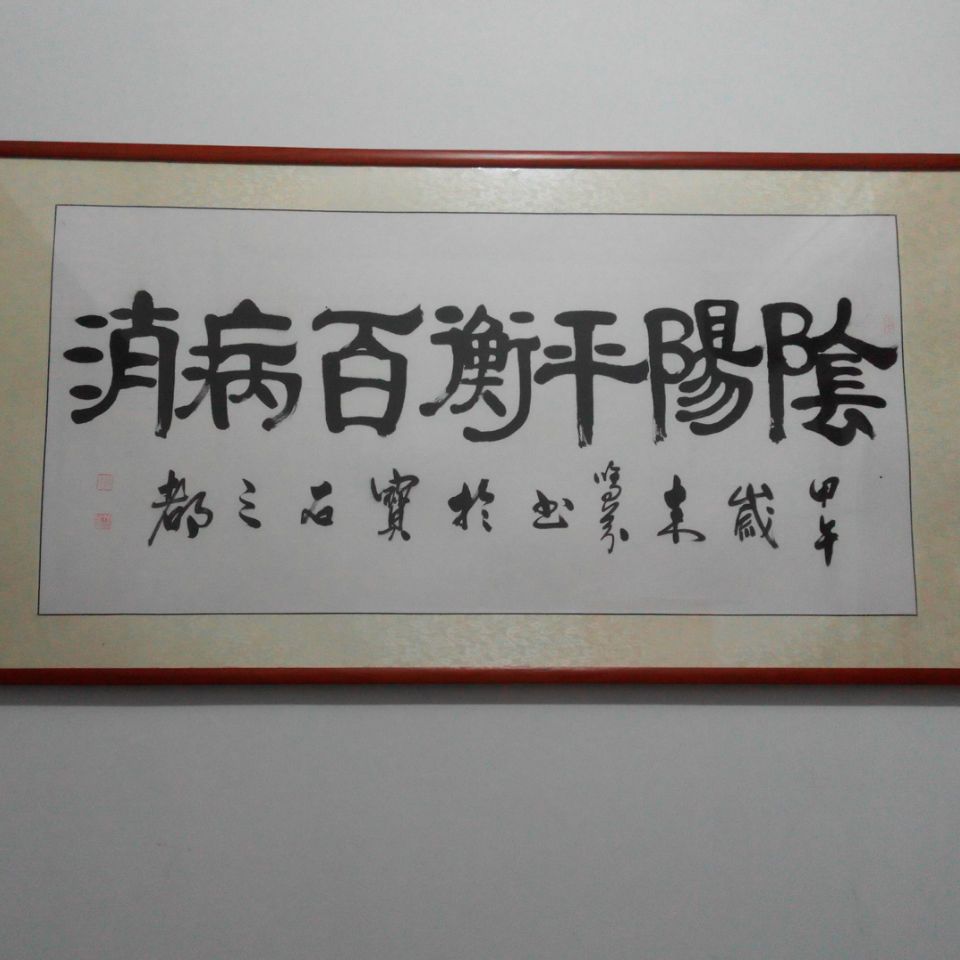 陰陽平衡百病消
甲午歲末鳴芬书於寶石之都